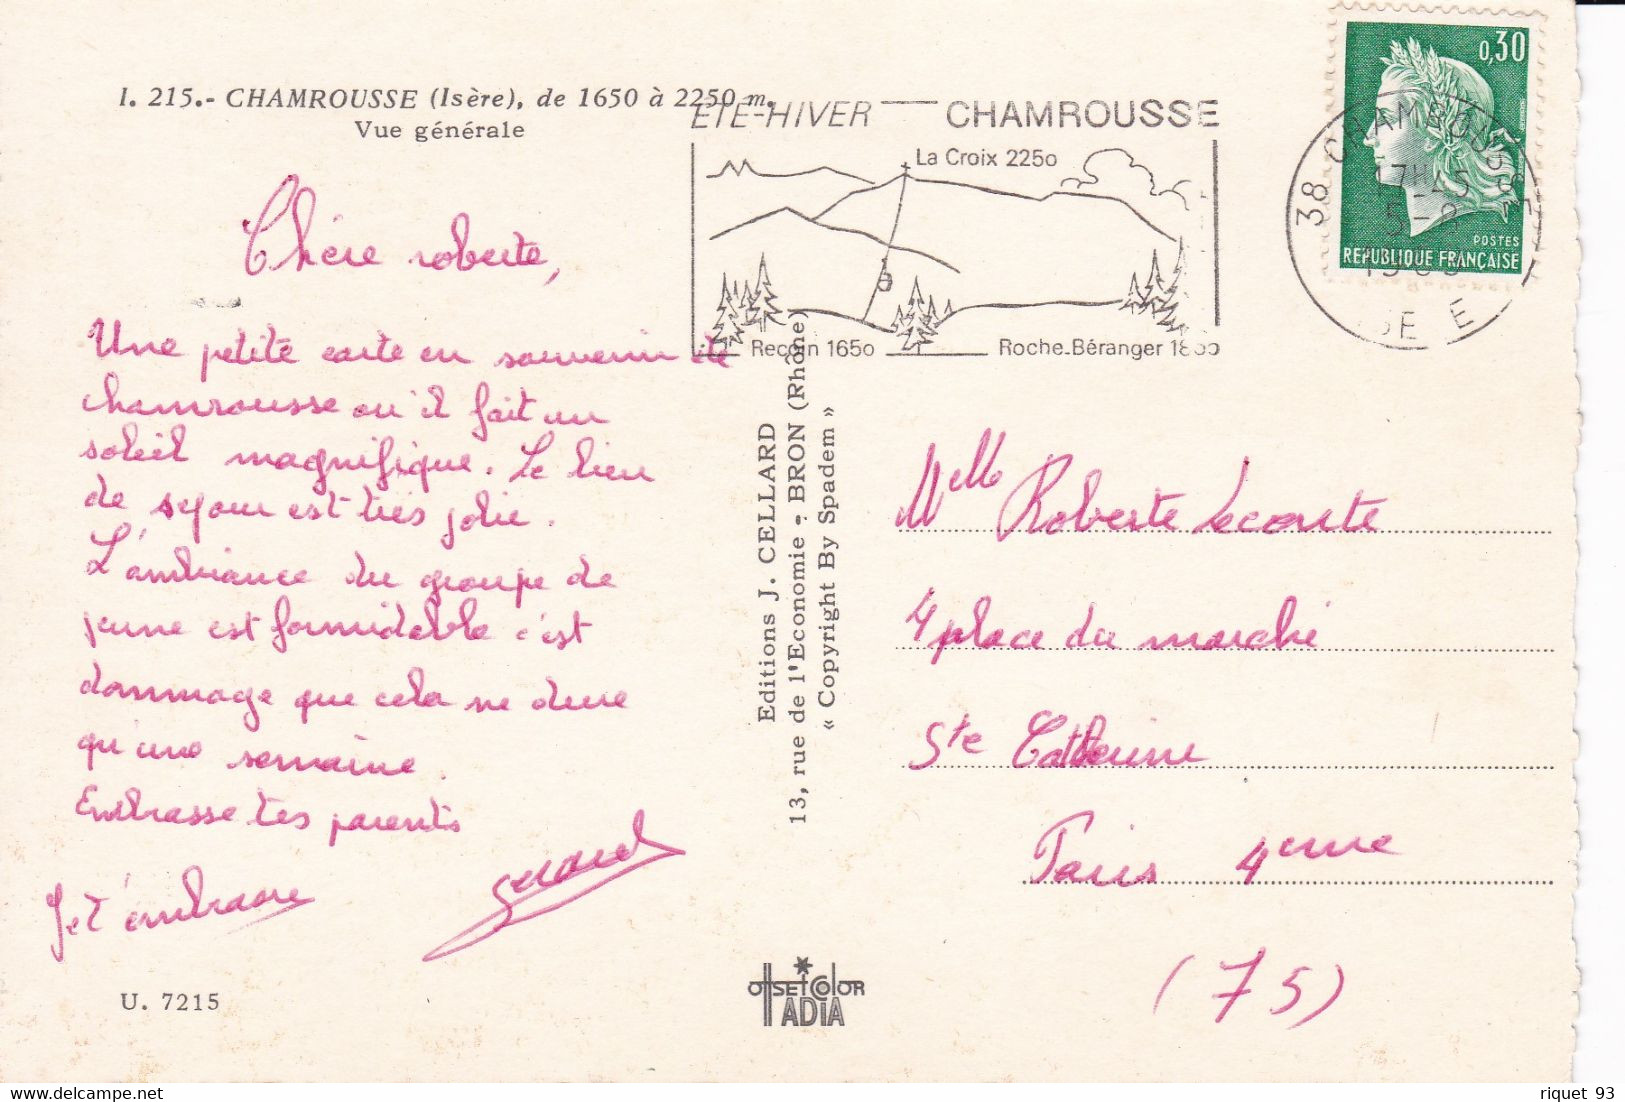 I. 215.- CHAMROUSSE (Isère), de 1650 à 2250 m.
Vue générale
Chére roberte,
Une petite carte en souvenir de
chamrousse ou il fait un
soleil magnifique. Le lieu
de sejour est très jolie.
L'ambiance du groupe de
jeune est formidable c'est
dommage que cela ne dure
qu'une semaine.
Embrasse tes parents
Je t'embrasse
Gerard
U. 7215
ETE-HIVER — CHAMROUSSE
La Croix 2250
Recoin 1650
Roche-Béranger
38 CHAMROUSSE
17H45
0,30
POSTES
REPUBLIQUE FRANÇAISE
Editions J. CELLARD
13, rue de l'Economie - BRON (Rhône)
« Copyright By Spadem »
OffsetColor
IADIA
Melle Roberte Lecomte
4 place du marché
Ste Catherine
Paris 4eme
(75)
riquet 93